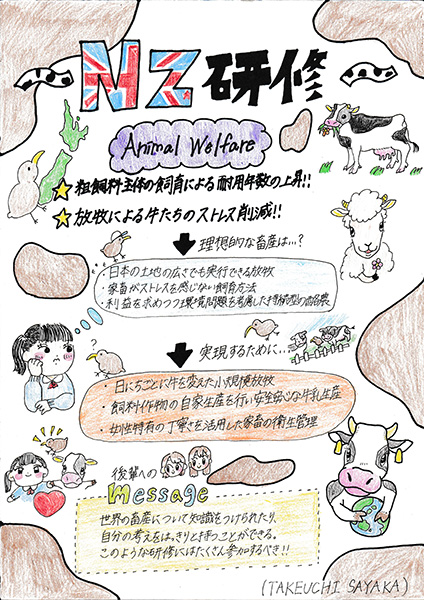 NZ 研修
Animal Welfare
★粗飼料主体の飼育による耐用年数の上昇!!
★放牧による牛たちのストレス削減!!
理想的な畜産は…?
・日本の土地の広さでも実行できる放牧
・家畜がストレスを感じない飼育方法
・利益を求めつつ環境問題を考慮した持続的な酪農
?
実現するために…
・日にちごとに牛を変えた小規模放牧
・飼料作物の自家生産を行い安全安心な牛乳生産
・女性特有の丁寧さを活用した家畜の衛生管理
後輩への
Message
世界の畜産について知識をつけられたり、
自分の考えをはっきりと持つことができる。
このような研修にはたくさん参加するべき!!
(TAKEUCHI SAYAKA)